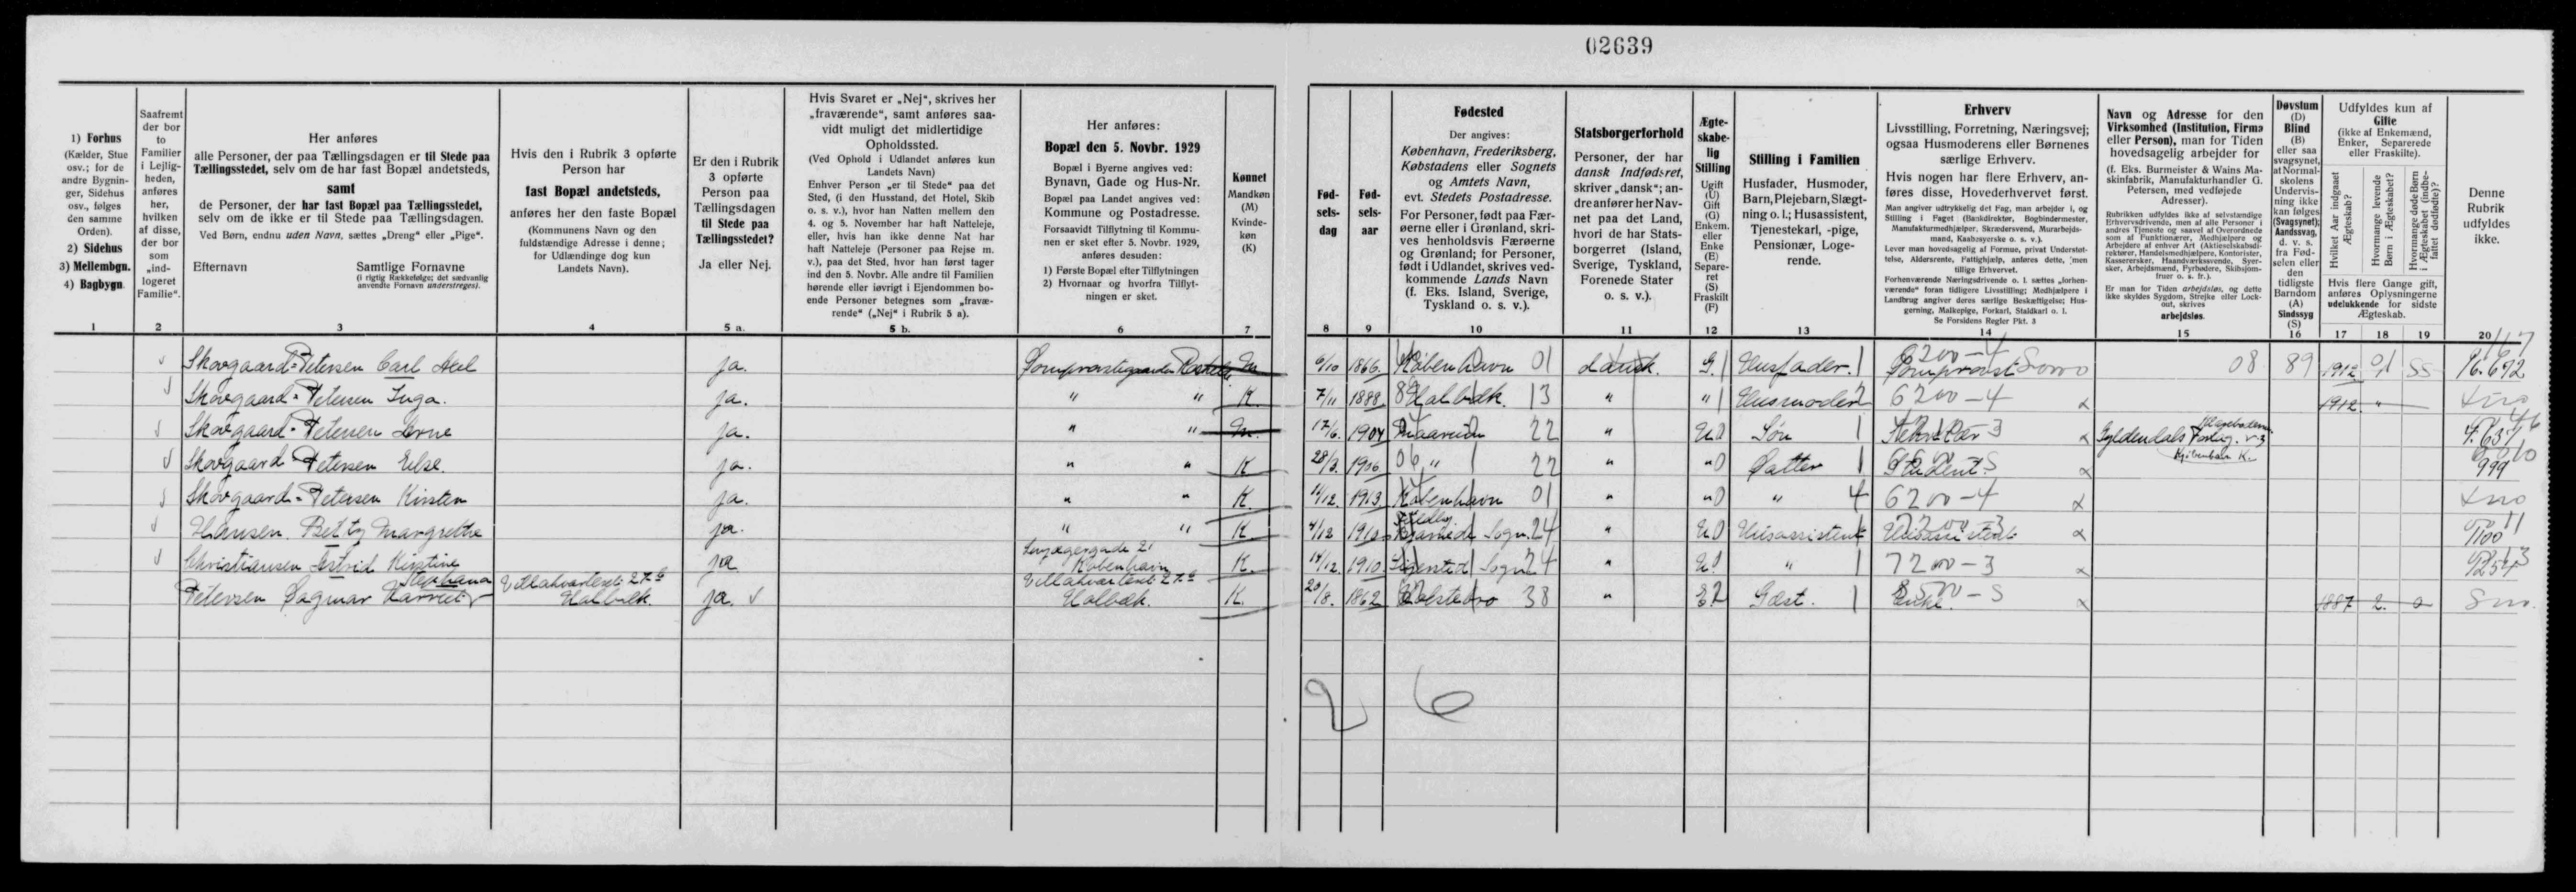 02639
1) Forhus (Kælder, Stue osv.; for de andre Bygninger, Sidehus osv., følges den samme Orden).
2) Sidehus
3) Mellembgn.
4) Bagbygn.
Saafremt der bor to Familier i Lejligheden, anføres her, hvilken af disse, der bor som „indlogeret Familie“.
Her anføres
alle Personer, der paa Tællingsdagen er til Stede paa Tællingsstedet, selv om de har fast Bopæl andetsteds,
samt
de Personer, der har fast Bopæl paa Tællingsstedet, selv om de ikke er til Stede paa Tællingsdagen.
Ved Børn, endnu uden Navn, sættes „Dreng“ eller „Pige“.
Efternavn Samtlige Fornavne
(i rigtig Rækkefølge; det sædvanlig anvendte Fornavn understreges).
Hvis den i Rubrik 3 opførte Person har
fast Bopæl andetsteds,
anføres her den faste Bopæl
(Kommunens Navn og den fuldstændige Adresse i denne; for Udlændinge dog kun Landets Navn).
Er den i Rubrik 3 opførte Person paa Tællingsdagen til Stede paa Tællingsstedet?
Ja eller Nej.
Hvis Svaret er „Nej“, skrives her „fraværende“, samt anføres saavidt muligt det midlertidige Opholdssted.
(Ved Ophold i Udlandet anføres kun Landets Navn)
Enhver Person „er til Stede“ paa det Sted, (i den Husstand, det Hotel, Skib o. s. v.), hvor han Natten mellem den 4. og 5. November har haft Natteleje, eller, hvis han ikke denne Nat har haft Natteleje (Personer paa Rejse m. v.), paa det Sted, hvor han først tager ind den 5. Novbr. Alle andre til Familien hørende eller iøvrigt i Ejendommen boende Personer betegnes som „fraværende“ („Nej“ i Rubrik 5 a).
Her anføres:
Bopæl den 5. Novbr. 1929
Bopæl i Byerne angives ved: Bynavn, Gade og Hus-Nr.
Bopæl paa Landet angives ved: Kommune og Postadresse.
Forsaavidt Tilflytning til Kommunen er sket efter 5. Novbr. 1929, anføres desuden:
1) Første Bopæl efter Tilflytningen
2) Hvornaar og hvorfra Tilflytningen er sket.
Kønnet
Mandkøn (M)
Kvindekøn (K)
Fødselsdag
Fødselsaar
Fødested
Der angives:
København, Frederiksberg, Købstadens eller Sognets og Amtets Navn, evt. Stedets Postadresse.
For Personer, født paa Færøerne eller i Grønland, skrives henholdsvis Færøerne og Grønland; for Personer, født i Udlandet, skrives vedkommende Lands Navn (f. Eks. Island, Sverige, Tyskland o. s. v.).
Statsborgerforhold
Personer, der har dansk Indfødsret, skriver „dansk“; andre anfører her Navnet paa det Land, hvori de har Statsborgerret (Island, Sverige, Tyskland, Forenede Stater o. s. v.).
Ægteskabelig Stilling
Ugift (U)
Gift (G)
Enkem. eller Enke (E)
Separeret (S)
Fraskilt (F)
Stilling i Familien
Husfader, Husmoder, Barn, Plejebarn, Slægtning o. l.; Husassistent, Tjenestekarl, -pige, Pensionær, Logerende.
Erhverv
Livsstilling, Forretning, Næringsvej; ogsaa Husmoderens eller Børnenes særlige Erhverv.
Hvis nogen har flere Erhverv, anføres disse, Hovederhvervet først.
Man angiver udtrykkelig det Fag, man arbejder i, og Stilling i Faget (Bankdirektør, Bogbindermester, Manufakturmedhjælper, Skrædersvend, Murarbejdsmand, Kaabesyerske o. s. v.).
Lever man hovedsagelig af Formue, privat Understøttelse, Aldersrente, Fattighjælp, anføres dette, men tillige Erhvervet.
Forhenværende Næringsdrivende o. l. sættes „forhenværende“ foran tidligere Livsstilling; Medhjælpere i Landbrug angiver deres særlige Beskæftigelse; Husgerning, Malkepige, Forkarl, Staldkarl o. l.
Se Forsidens Regler Pkt. 3
Navn og Adresse for den Virksomhed (Institution, Firma eller Person), man for Tiden hovedsagelig arbejder for
(f. Eks. Burmeister & Wains Maskinfabrik, Manufakturhandler G. Petersen, med vedføjede Adresser).
Rubrikken udfyldes ikke af selvstændige Erhvervsdrivende, men af alle Personer i andres Tjeneste og saavel af Overordnede som af Funktionærer, Medhjælpere og Arbejdere af enhver Art (Aktieselskabsdirektører, Handelsmedhjælpere, Kontorister, Kasserersker, Haandværkssvende, Syersker, Arbejdsmænd, Fyrbødere, Skibsjomfruer o. s. fr.).
Er man for Tiden arbejdsløs, og dette ikke skyldes Sygdom, Strejke eller Lockout, skrives arbejdsløs.
Døvstum (D)
Blind (B)
eller saa svagsynet, at Normalskolens Undervisning ikke kan følges (Svagsynet); Aandssvag, d. v. s. fra Fødselen eller den tidligste Barndom (A)
Sindssyg (S)
Udfyldes kun af Gifte
(ikke af Enkemænd, Enker, Separerede eller Fraskilte).
Hvilket Aar indgaaet Ægteskab?
Hvormange levende Børn i Ægteskabet?
Hvormange døde Børn i Ægteskabet (indbefattet dødfødte)?
Hvis flere Gange gift, anføres Oplysningerne udelukkende for sidste Ægteskab.
Denne Rubrik udfyldes ikke.
1 2 3 4 5 a. 5 b. 6 7 8 9 10 11 12 13 14 15 16 17 18 19 20
Skovgaard-Petersen Carl Axel ja. M 6/10 1866. København 01 dansk. G. 1 Husfader. 1 6200-4 Domprovst Soro 08 89 1912 01 SS 16.692
Skovgaard-Petersen Inga. ja. " " K. 7/11 1888. Holbæk. 13 " " 1 Husmoder 2 6200-4 1912. "
Skovgaard-Petersen Arne ja. " " M. 17/6. 1904 22 " U 0 Søn 1 Sekretær 3 Gyldendals Forlag. København K. 4.637
Skovgaard-Petersen Else. ja. " " K 28/3. 1906 06 " 22 " " 0 Datter 1 Student. 999
Skovgaard-Petersen Kirsten ja. " " K. 1913. København 01 " " 0 " 4 6200-4
Hansen Betty Margrethe ja. " " K 4/12 1910 Sogn. 24 " U 0 Husassistent Husassistent 1100
Christiansen Astrid Kirstine ja. 21 København K. 14/12. 1910 Sigersted Sogn 24 " U. " 1 7200-3 1254
Petersen Dagmar Harriet Stephana Villakvarteret 27 Holbæk. ja. Villakvarteret 27 Holbæk. K. 20/8. 1862 Holstebro 38 " E2 Gæst. 1 Enke. 1887 2. 0
2 6